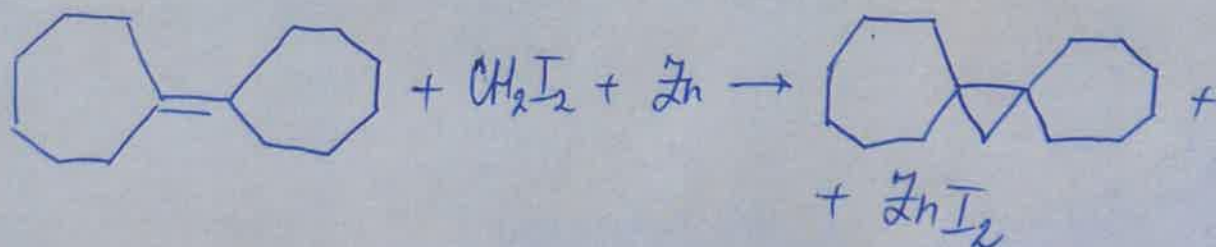 + CH₂I₂ + Zn → +
+ ZnI₂